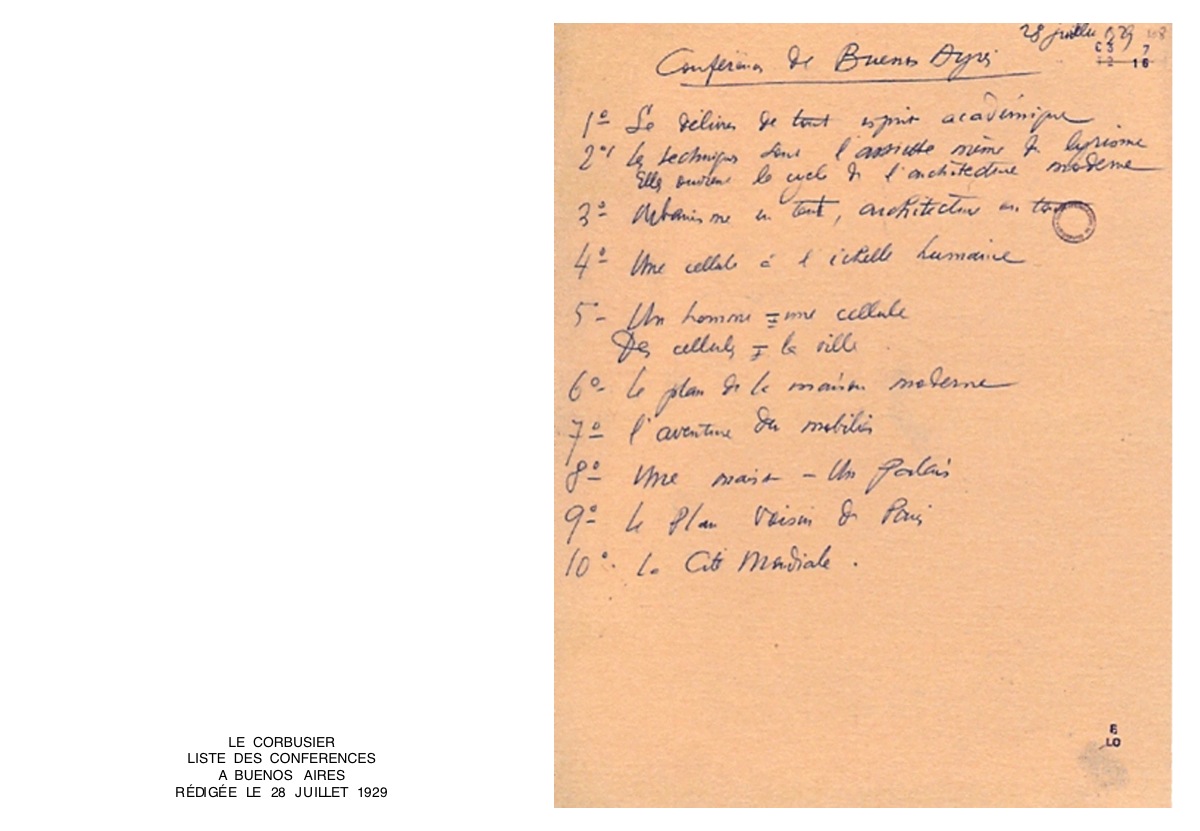 LE CORBUSIER
LISTE DES CONFERENCES
A BUENOS AIRES
RÉDIGÉE LE 28 JUILLET 1929
28 juillet 1929
C 3 7
12 16
Conférences de Buenos Ayres
1° Se délivrer de tout esprit académique
2° Les techniques sont l'assiette même du lyrisme
Elles ouvrent le cycle de l'architecture moderne
3° Urbanisme en tout, architecture en tout
4° Une cellule à l'échelle humaine
5- Un homme = une cellule
Des cellules = la ville
6°- Le plan de la maison moderne
7° l'aventure du mobilier
8° Une maison - Un Palais
9° Le Plan Voisin de Paris
10° La Cité Mondiale.
LO